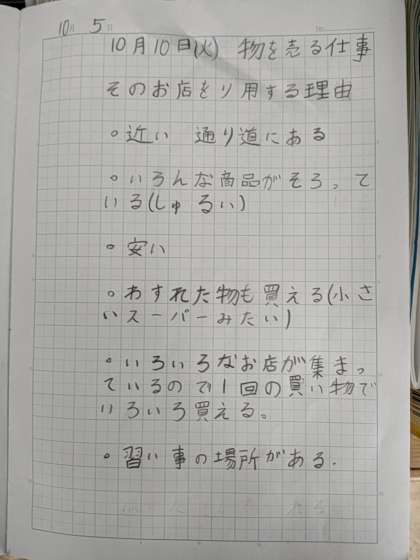 10月 5日
10月10日(火) 物を売る仕事
そのお店をり用する理由
。近い 通り道にある
。いろんな商品がそろって
いる(しゅるい)
。安い
。わすれた物も買える(小さ
いスーパーみたい)
。いろいろなお店が集まっ
ているので1回の買い物で
いろいろ買える。
。習い事の場所がある.